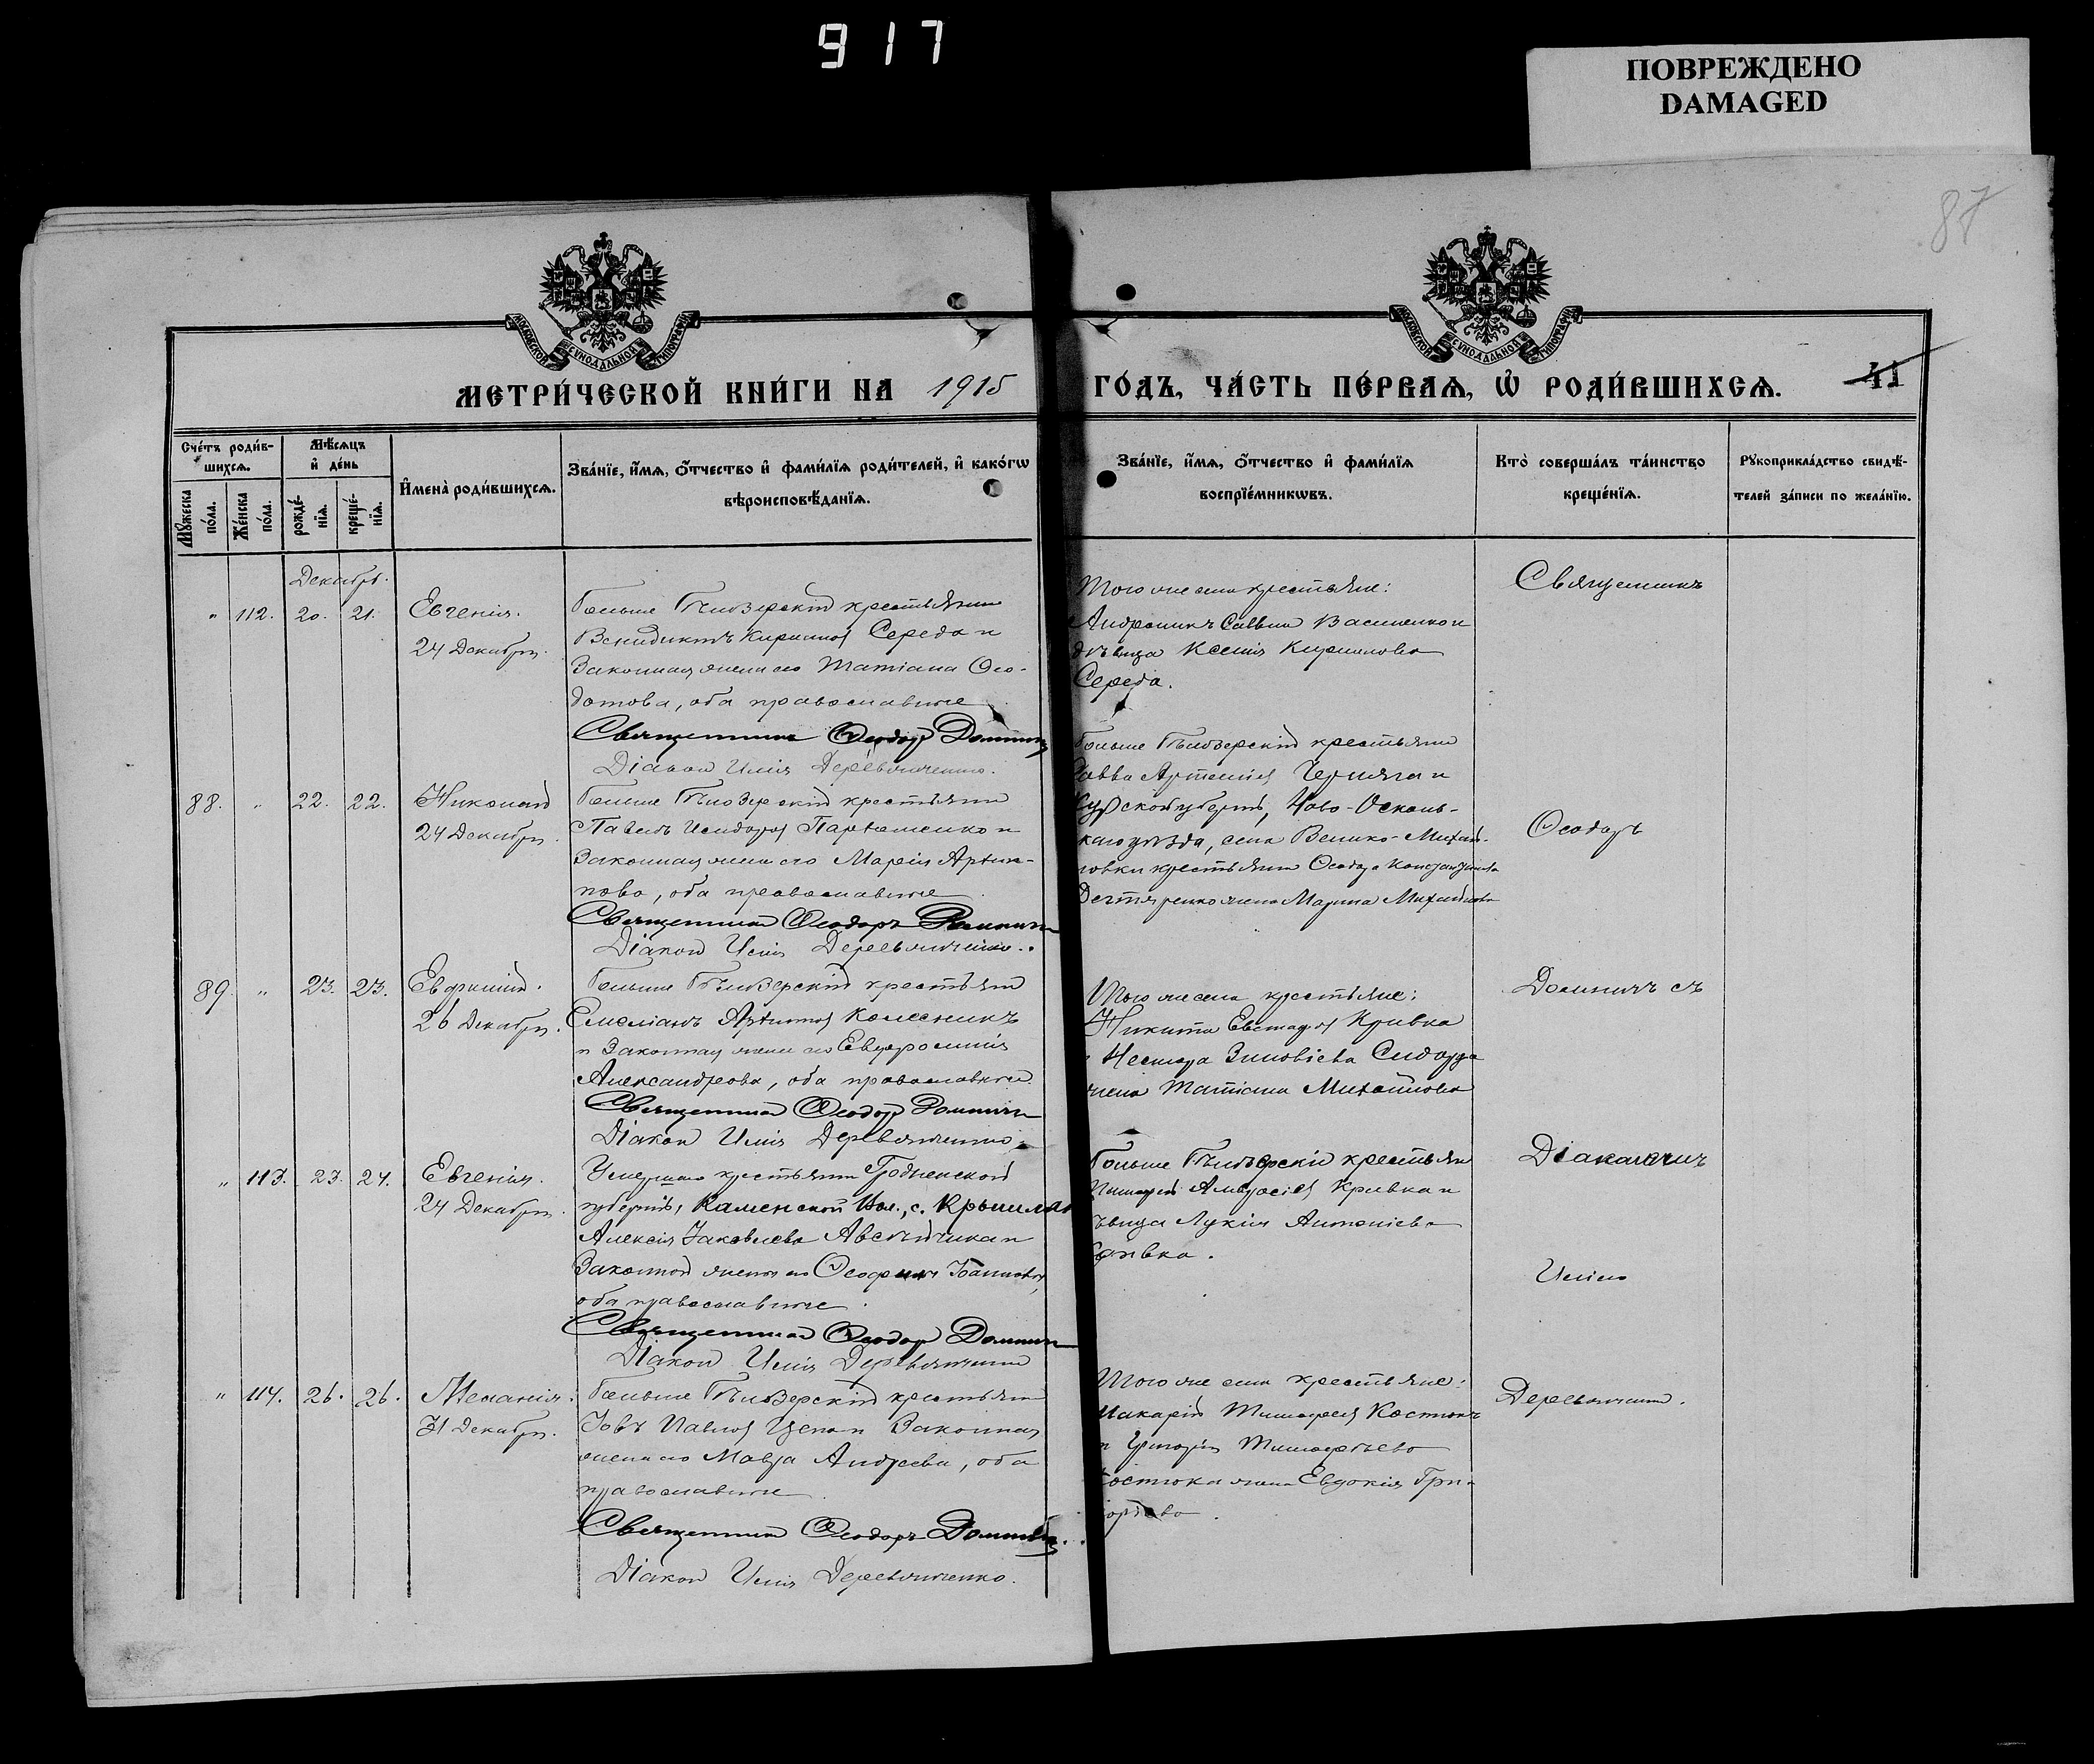 917
ПОВРЕЖДЕНО
DAMAGED
87
МОСКОВСКОЙ СѴНОДАЛЬНОЙ ТИПОГРАФІИ
МОСКОВСКОЙ СѴНОДАЛЬНОЙ ТИПОГРАФІИ
МЕТРИ́ЧЕСКОЙ КНИ́ГИ НА 1915 ГО́ДЪ, ЧА́СТЬ ПЕ́РВАѦ, Ѡ҆ РОДИ́ВШИХСѦ. 41
Сче́тъ роди́в-
шихсѧ.
Мѣ́сѧцъ
и҆ де́нь
Мꙋжеска
по́ла.
Же́нска
по́ла.
рожде́-
нїѧ.
креще́-
нїѧ.
И҆мена̀ роди́вшихсѧ.
Зва́нїе, и҆́мѧ, ѻ҆́тчество и҆ фами́лїѧ роди́телей, и҆ како́гѡ
вѣроисповѣ́данїѧ.
Зва́нїе, и҆́мѧ, ѻ҆́тчество и҆ фами́лїѧ
воспрїе́мникѡвъ.
Кто̀ соверша́лъ та́инство
креще́нїѧ.
Рꙋкоприкла́дство свидѣ́-
телей за́писи по жела́нїю.
Декабрь.
" 112. 20. 21. Евгенія.
24 Декабря.
Больше Бѣлозерскій крестьянинъ
Венидиктъ Кириловъ Середа и
Законная жена его Татіана Ѳео-
дотова, оба православные
Священникъ Ѳеодоръ Доминичъ
Діаконъ Илія Деревянченко.
Того же села крестьяне:
Андроникъ Саввинъ Василенко и
дѣвица Ксенія Кирилова
Середа.
Священникъ
88. " 22. 22. Николай
24 Декабря.
Больше Бѣлозерскій крестьянинъ
Павелъ Исидоровъ Пархоменко и
Законная жена его Марія Архип-
пова, оба православные
Священникъ Ѳеодоръ Доминичъ
Діаконъ Илія Деревянченко.
Больше Бѣлозерскій крестьянинъ
Савва Артеміевъ Черняга и
Курской губерніи, Ново-Осколь-
каго уѣзда, села Велико-Михай-
ловки крестьянина Ѳеодора Константинова
Дегтяренко жена Марина Михайлова
Ѳеодоръ
89. " 23. 23. Евфимій.
26 Декабря.
Больше Бѣлозерскій крестьянинъ
Емеліанъ Архиповъ Колесникъ
и Законная жена его Евфросинія
Александрова, оба православные.
Священникъ Ѳеодоръ Доминичъ
Діаконъ Илія Деревянченко
Того же села крестьяне:
Никита Евстафіевъ Кривка
и Нестора Зиновіева Сидора
жена Татіана Михайлова
Доминичъ съ
" 113. 23. 24. Евгенія.
24 Декабря.
крестьянина Гродненской
губерніи, Каменской Вол., с.
Алексія Іаковлева
Законной жены его Іоанновой,
оба православные.
Священникъ Ѳеодоръ Доминичъ
Діаконъ Илія Деревянченко
Больше Бѣлозерскій крестьянинъ
Амвросіевъ Кривка и
дѣвица Лукія Антоніева
Діакономъ
Иліею
" 114. 26. 26. Меланія.
31 Декабря.
Больше Бѣлозерскій крестьянинъ
Іовъ Павловъ Цепа и Законная
жена его Мавра Андреева, оба
православные.
Священникъ Ѳеодоръ Доминичъ.
Діаконъ Илія Деревянченко.
Того же села крестьяне:
Макарій Тимофеевъ Костюкъ
и Григорія Тимофеева
Костюка жена Евдокія Гри-
горьева.
Деревянченко.